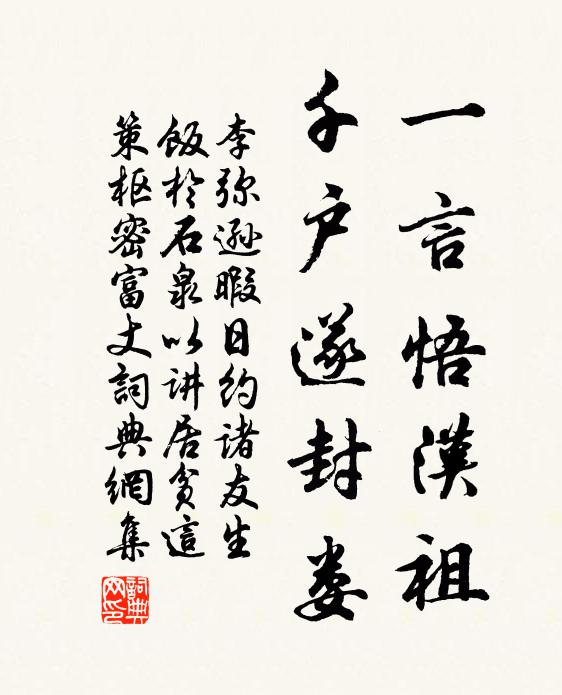 一言悟漢祖
千户遂封娄
李弥遜暇日约諸友生
飯於石泉以讲居貧這
策枢密富文詞典網集
詞典網印